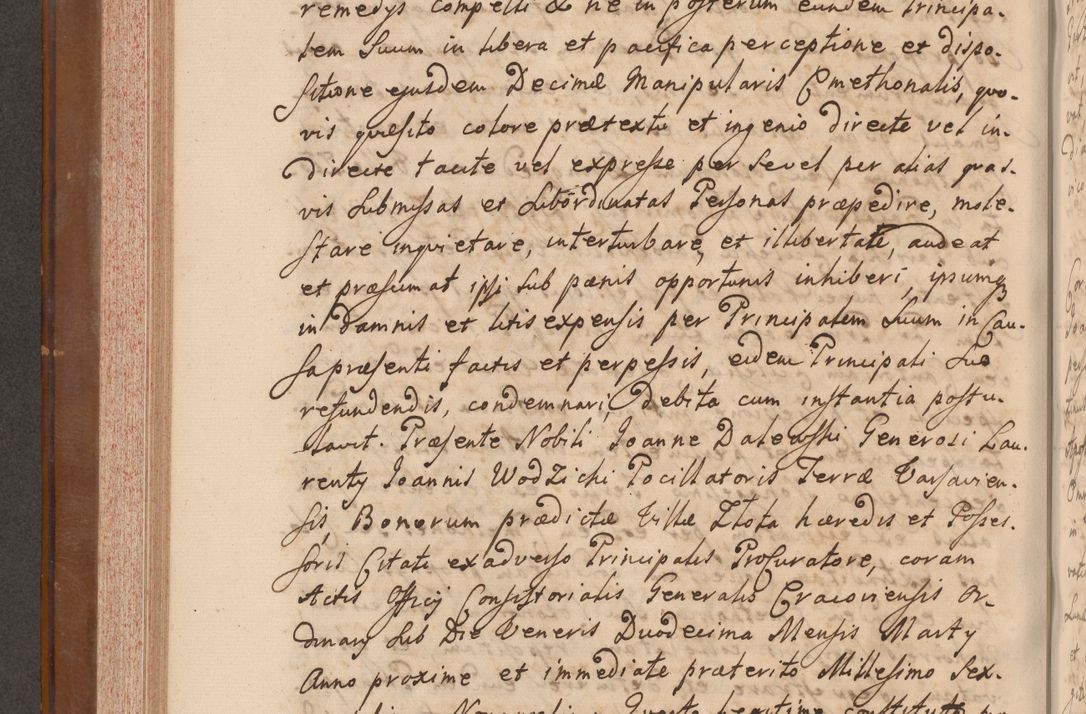 remedys compelli & ne in posterum eundem Principa-
lem Suum in libera et pacifica perceptione et dispo-
sitione ejusdem Decimæ Manipularis Cmethonalis, quo-
vis quæsito colore prætextu et ingenio directe vel in-
directe tacite vel expresse per se vel per alias quas-
vis submissas et subordinatas Personas præpedire, mole-
stare inquietare, interturbare, et illibertate, audeat
et præsumat ipsi sub pænis opportunis inhiberi, ipsumq3
in damnis et litis expensis per Principalem Suum in Cau-
sa præsenti factis et perpessis, eidem Principali Suo
refundendis, condemnari, Debita cum instantia postu-
lavit. Præsente Nobili Joanne Daleński Generosi Lau-
renty Joannis Wodzicki Pocillatoris Terræ Varsavien-
sis, Bonorum prædictæ Villæ Złota hæredis et Posses-
soris Citati ex adverso Principalis Procuratore, coram
Actis Officij Consistorialis Generalis Cracoviensis Or-
dinary sub Die Veneris Duodecima Mensis Marty
Anno proxime et immediate præterito Millesimo Sex-